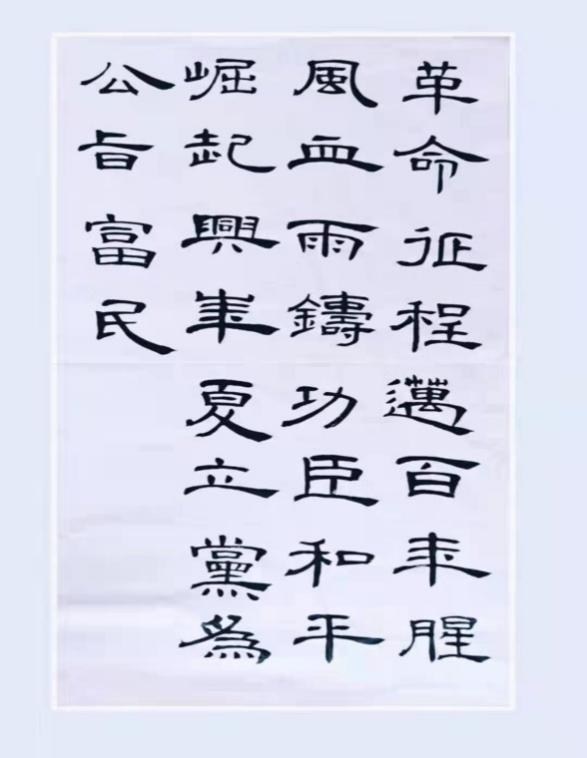 革命征程邁百年腥
風血雨鑄功臣和平
崛起興華夏立黨為
公旨富民